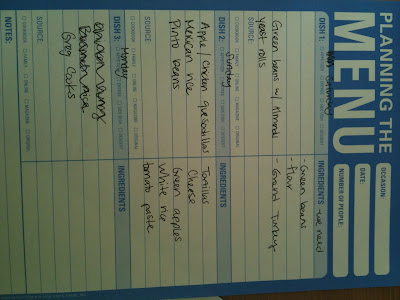 PLANNING THE
MENU
OCCASION:
DATE:
NUMBER OF PEOPLE:
DISH 1: Saturday
INGREDIENTS we need
Green beans w/ Almonds
yeast rolls
- Green beans
- flour
- Ground Turkey
SOURCE
DISH 2: Sunday
INGREDIENTS
Apple/Chicken quesadillas
Mexican rice
Pinto beans
Tortillas
Cheese
Green apples
White rice
tomato paste
SOURCE
DISH 3: Monday
INGREDIENTS
chicken curry
Basmati rice
Greg Cooks
SOURCE
NOTES: